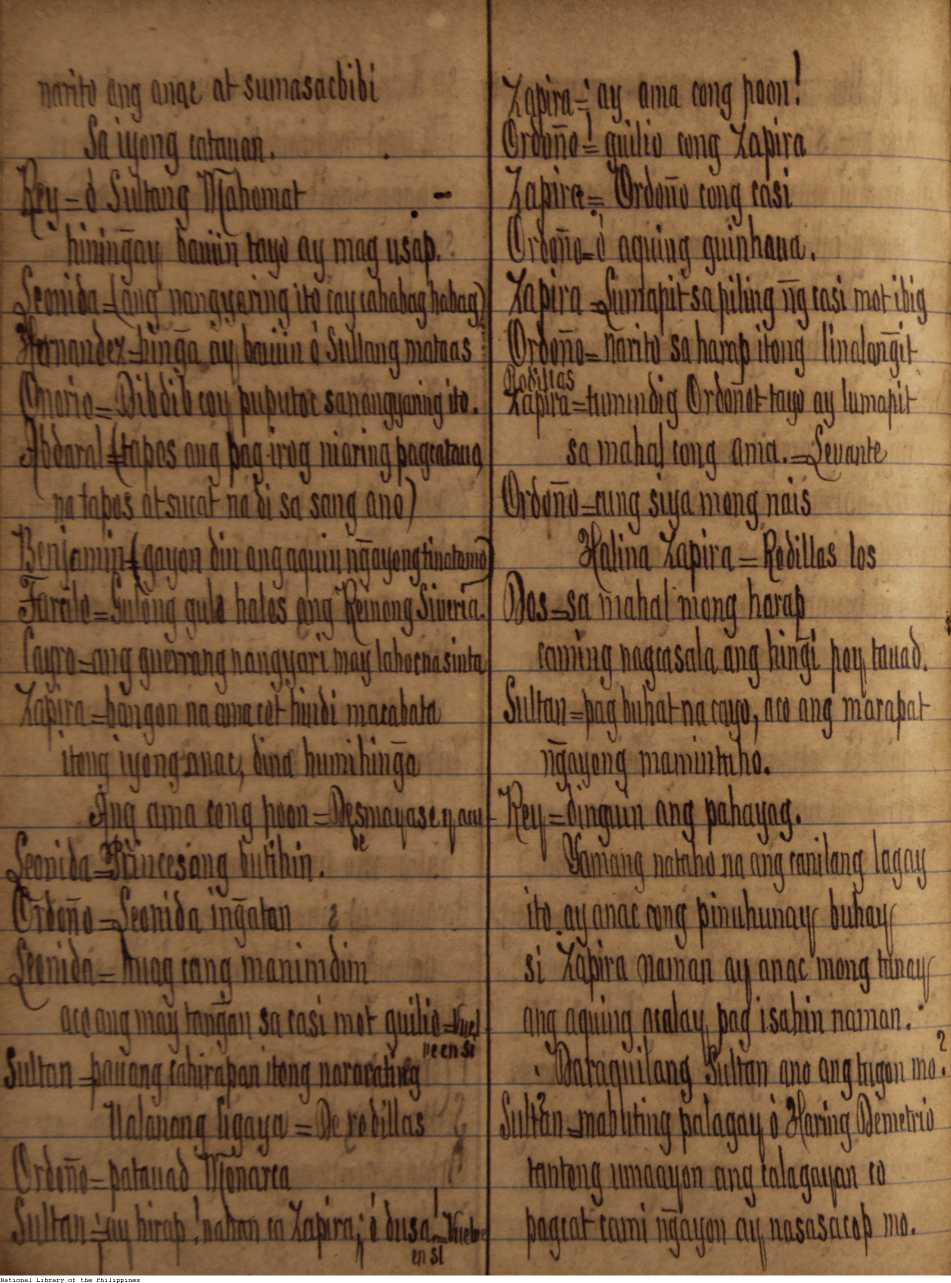 narito ang anac at sumasacbibi
Sa iyong catauan.
Rey = ó Sultang Mahomat
hiningay bauiin tayo ay mag usap.
Leonida = (ang nangyaring ito cay cahabag habag)
Hernandez = hinga ay bauiin ó Sultang mataas
Onorio = Dibdib coy puputoc sa nangyaring ito.
Abdaral = (tapos ang pag irog niaring pagcatauo
na tapos at sucat na di sa sang ano)
Benjamin = (gayon din ang aquin ngayong tinatamo)
Farcito = Sulong gulo halos ang Reinong Siveria.
Cayro = ang guerrang nangyari may lahoc na sinta
Zapira = bangon na ama cot hindi macabata
itong iyong anac, dina humihinga
Ang ama cong poon = Desmayase y acu
de
Leonida = Princesang butihin.
Ordoño = Leonida ingatan
Leonida = huag cang manimdim
aco ang may tangan sa casi mot guilio = Vuel
ve en si
Sultan = pauang cahirapan itong
Ualanang ligaya = De rodillas
Ordoño = patauad Monarca
Sultan = ¡ay hirap! nahan ca Zapira; ó dusa! = Vuelve
en si
Zapira = ¡ay ama cong poon!
Ordoño = ¡guilio cong Zapira
Zapira = Ordoño cong casi
Ordoño = ó aquing guinhaua.
Zapira = Lumapit sa piling ng casi mot ibig
Ordoño = narito sa harap itong linalangit
Rodillas
Zapira = tumindig Ordoñot tayo ay lumapit
sa mahal cong ama. = Levante
Ordoño = cung siya mong nais
Halina Zapira = Rodillas los
Dos = sa mahal mong harap
caming nagcasala ang hingi poy tauad.
Sultan = pag buhat na cayo, aco ang marapat
ngayong mamintuho.
Rey = dinguin ang pahayag.
Yamang nataho na ang canilang lagay
ito ay anac cong pinuhunay buhay
si Zapira naman ay anac mong tunay
ang aquing acalay pag isahin naman.
Daraquilang Sultan ano ang tugon mo?
Sultan = mabuting palagay ó Haring Demetrio
tantong umaayon ang calagayan co
pagcat cami ngayon ay nasasacop mo.